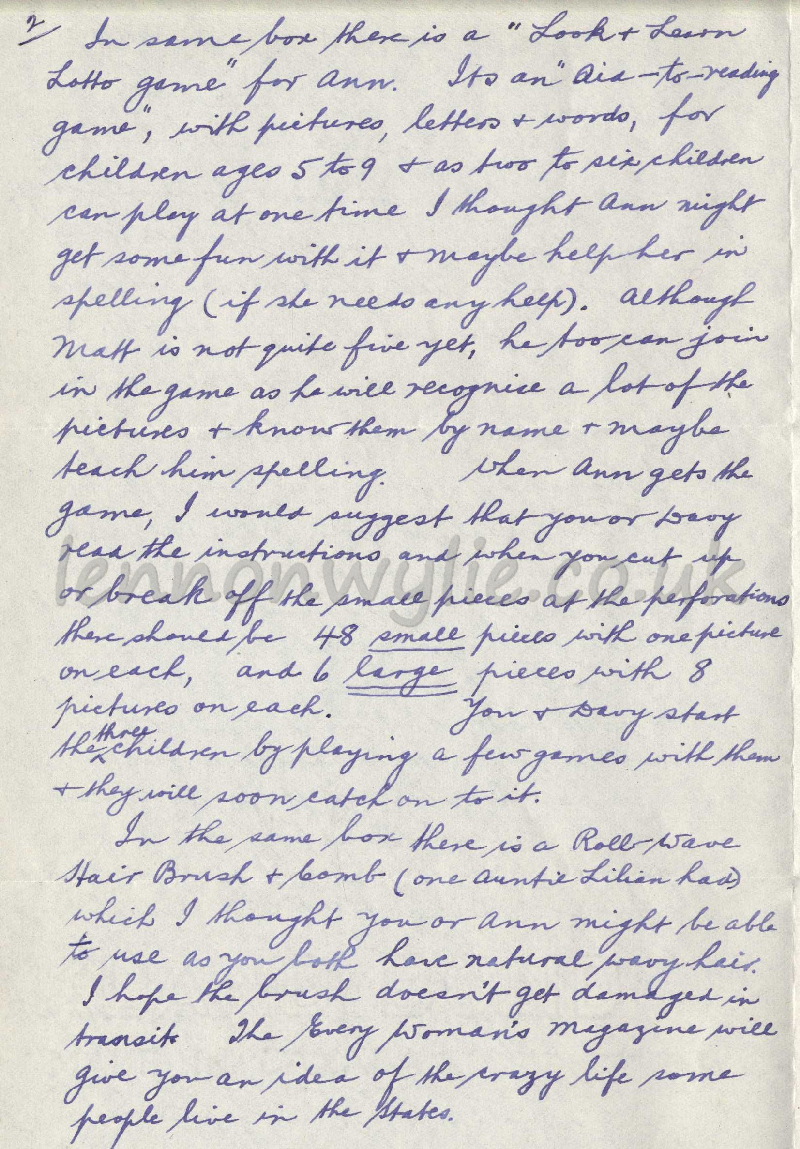 2/
In same box there is a "Look & Learn
Lotto game" for Ann. Its an "Aid-to-reading
game", with pictures, letters & words, for
children ages 5 to 9 & as two to six children
can play at one time I thought Ann might
get some fun with it & maybe help her in
spelling (if she needs any help). Although
Matt is not quite five yet, he too can join
in the game as he will recognise a lot of the
pictures & know them by name & maybe
teach him spelling. When Ann gets the
game, I would suggest that you or Davy
read the instructions and when you cut up
or break off the small pieces at the perforations
there should be 48 small pieces with one picture
on each, and 6 large pieces with 8
pictures on each. You & Davy start
the three children by playing a few games with them
& they will soon catch on to it.
In the same box there is a Roll-Wave
Hair Brush & Comb (one Auntie Lilian had)
which I thought you or Ann might be able
to use as you both have natural wavy hair.
I hope the brush doesn't get damaged in
transit. The Every Woman's Magazine will
give you an idea of the crazy life some
people live in the States.
lennonwylie.co.uk